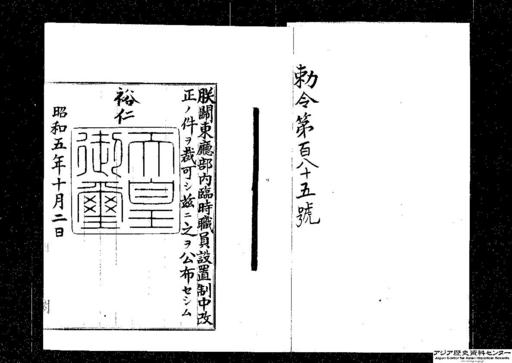 勅令第百八十五號
朕關東廳部內臨時職員設置制中改
正ノ件ヲ裁可シ玆ニ之ヲ公布セシム
裕仁
天皇
御璽
昭和五年十月二日
アジア歴史資料センター
Japan Center for Asian Historical Records